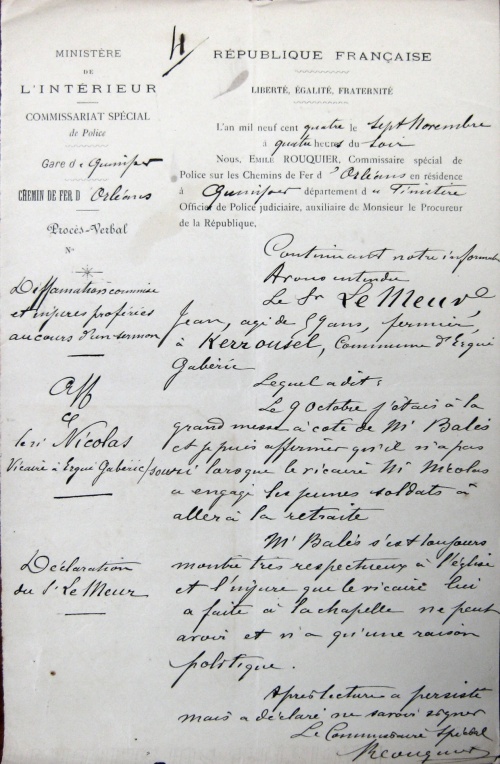 MINISTÈRE
DE
L'INTÉRIEUR
COMMISSARIAT SPÉCIAL
de Police
Gare de Quimper
CHEMIN DE FER D'Orléans
Procès-Verbal
N°
Diffamation commise
et injures proférées
au cours d'un sermon
Aff
le sr Nicolas
Vicaire à Ergué Gabéric
Déclaration
du Sr Le Meur
RÉPUBLIQUE FRANÇAISE
LIBERTÉ, ÉGALITÉ, FRATERNITÉ
L'an mil neuf cent quatre le sept Novembre
à quatre heures du soir
Nous, EMILE ROUQUIER, Commissaire spécial de
Police sur les Chemins de Fer d'Orléans en résidence
à Quimper département du Finistère
Officier de Police judiciaire, auxiliaire de Monsieur le Procureur
de la République,
Continuant notre information
Avons entendu
Le Sr Le Meur
Jean, agé de 59 ans, fermier,
à Kerrousel, Commune d'Ergué
Gabéric
Lequel a dit:
Le 9 Octobre j'étais à la
grand messe à côté de Mr Balès
et je puis affirmer qu'il n'a pas
souri lorsque le vicaire Mr Nicolas
a engagé les jeunes soldats à
aller à la retraite
Mr Balès s'est toujours
montré très respectueux à l'église
et l'injure que le vicaire lui
a faite à la chapelle ne peut
avoir et n'a qu'une raison
politique.
Après lecture a persisté
mais a déclaré ne savoir signer
Le Commissaire Spécial
Rouquier